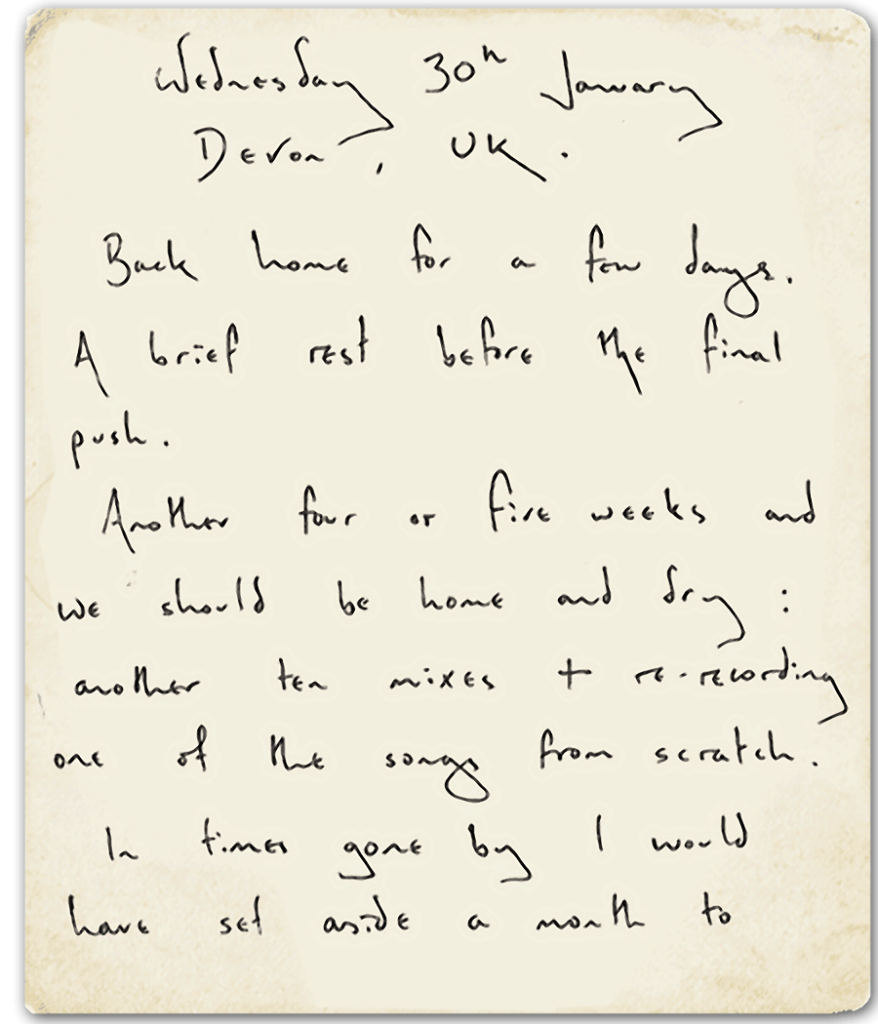 Wednesday 30th January
Devon, UK.
Back home for a few days.
A brief rest before the final
push.
Another four or five weeks and
we should be home and dry:
another ten mixes + re-recording
one of the songs from scratch.
In times gone by I would
have set aside a month to